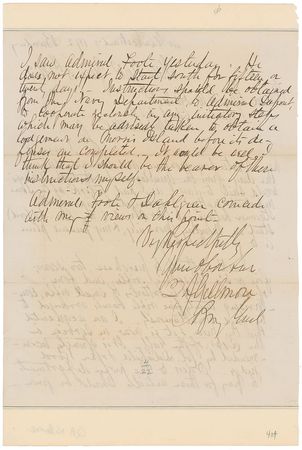 I saw Admiral Foote yesterday. He
does not expect to start South for fifteen or
twenty days. Instructions should be obtained
from the Navy Department to Admiral Dupont,
to cooperate cordially in any initiatory steps
which may be advisable to obtain a
lodgement on Morris Island before its de-
fenses are completed. It would be well I
think that I should be the bearer of these
instructions myself.
Admirals Foote & Dahlgren coincide
with my views on this point.
Very Respectfully
Your Obt Sevt
Q A Gillmore
Brig Genl
404